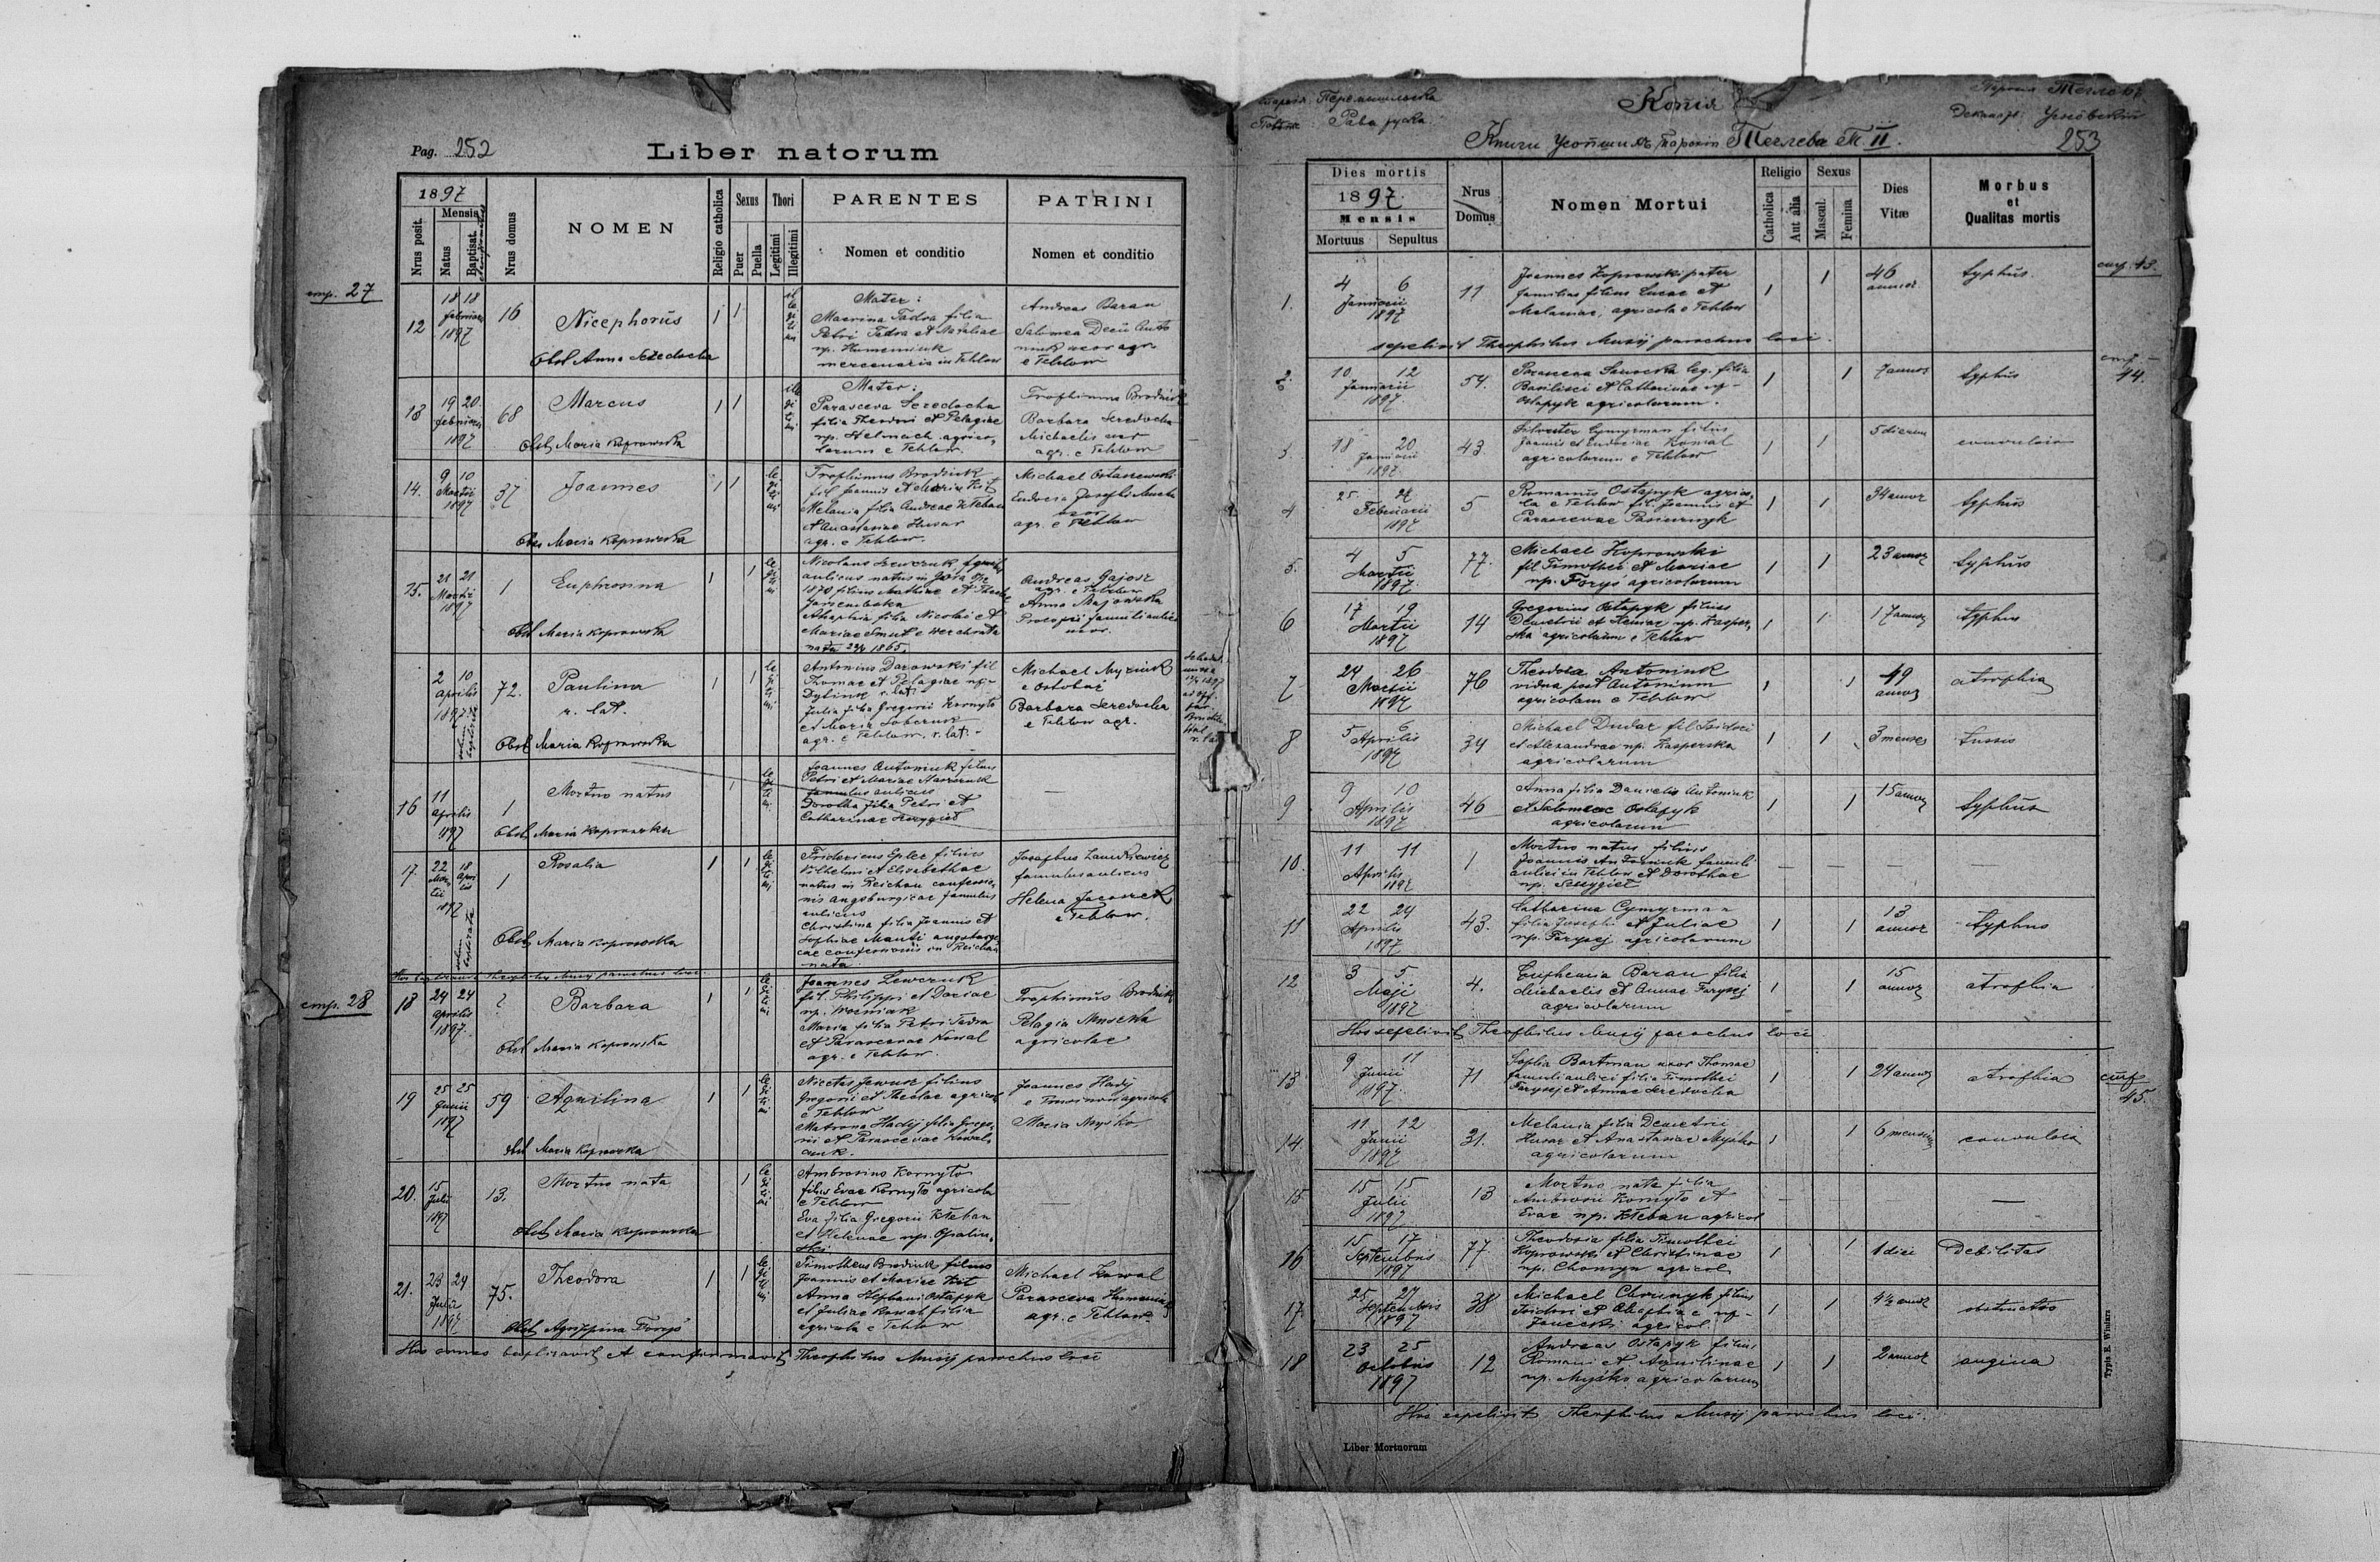 Pag. 252
Liber natorum
1897
Nrus posit.
Mensis
Natus
Baptisat.
Nrus domus
NOMEN
Religio catholica
Sexus
Puer
Puella
Thori
Legitimi
Illegitimi
PARENTES
Nomen et conditio
PATRINI
Nomen et conditio
cmp. 27
12
18 18
februarii
1897
16
Nicephorus
1 1
Obst Anna Szedocha
Mater:
Macrina Fedra filia
Petri Fedra et Nataliae
np. Humeniuk
mercenaria in Tehlow
Andreas Baran
Salomea
uxor agr.
e Tehlow
13
19 20
februarii
1897
68
Marcus
1 1
Obst Maria Koprowska
Mater:
Parasceva Seredocha
filia Theodori et Pelagiae
np. Helmach agrico
larum e Tehlow.
Trophimus Brodziuk
Barbara Seredocha
Michaelis uxor
agr. e Tehlow
14.
9 10
Martii
1897
37
Joannes
1 1
Obst Maria Koprowska
le
gi
ti
mi
Trophimus Brodziuk
fil Joannis et Mariae Kit
Melania filia Andreae Kteban
et Anastasiae Huzar
agr. e Tehlow.
Michael Ostaszewski
Eudocia Josephi
uxor
agr. e Tehlow
15.
21 21
Martii
1897
1
Euphrosina
1 1
Obst Maria Koprowska
Nicolaus Szewczuk famulus
aulicus natus in
1870 filius Mathiae et Theclae
Agaphia filia Nicolai et
Mariae Smut e Werchrata
nata 1865.
Andreas Gajosz
agr. e Tehlow
Anna Majowska
Procopii famuli aulici
uxor.
2 10
Aprilis
1897
72.
Paulina
r. lat.
1 1
Obst Maria Koprowska
Antonius Dazowski fil
Thomae et Pelagiae np.
Dytiuk r. lat.
Julia filia Gregorii Kornyło
et Maria
agr. e Tehlow. r. lat.
Michael Myziuk
e Ostobuż
Barbara Seredocha
e Tehlow agr.
16
11
Aprilis
1897
1
Mortuo natus
1
Obst Maria Koprowska
Joannes Antoniuk filius
Petri et Mariae
famulus aulicus
Dorothea filia Petri et
Catharinae Szczygieł
—
17.
22 18
Martii Aprilis
1897
1
Rosalia
1 1
Obst Maria Koprowska
Fridericus Epler filius
Wilhelmi et Elisabethae
natus in Reichau confessio
nis augsburgicae famulus
aulicus
Christina filia Joannis et
Sophiae Manti augsburgi
cae confessionis in Reichau
nata
Josephus Lawkiewicz
famulus aulicus
Helena
e Tehlow.
Hos baptizavit Theophilus Musij parochus loci.
cmp. 28
18
24 24
aprilis
1897
2
Barbara
1 1
Obst Maria Koprowska
Joannes Lewczuk
fil. Philippi et Dariae
np. Wozniak
Maria filia Petri Fedra
et Parascevae Kowal
agr. e Tehlow
Trophimus Brodziuk
Pelagia
agricolae
19
25 25
Junii
1897
59
Aquilina
1 1
Obst Maria Koprowska
Nicetas Jewusz filius
Gregorii et Theclae agricol
e Tehlow
Matrona Hadij filia Grego
rii et Parascevae Kowal
czuk.
Joannes Hadij
e agricola
Maria Myśko
20.
15
Julii
1897
13.
Mortuo nata
1
Obst Maria Koprowska
Ambrosius Kornyło
filius Evae Kornyło agricola
e Tehlow
Eva filia Gregorii Kteban
et Helenae np. Opalin
ski
21.
23 24
Julii
1897
75.
Theodora
1 1
Obst Agrippina Forys
Timotheus Brodziuk filius
Joannis et Mariae Kit
Anna Stephani Ostapyk
et Juliae Kowal filia
agricola e Tehlow
Michael Kowal
Parasceva Humeniuk
agr. e Tehlow
Hos omnes baptizavit et confirmavit Theophilus Musij parochus loci
Перемишльска
Рава руска.
Копія
Теглевъ
Деканатъ Угнёвскій
Книги Усопшихъ Парохіи Теглева Т. II.
253
Dies mortis
1897.
Mensis
Mortuus
Sepultus
Nrus
Domus
Nomen Mortui
Religio
Catholica
Aut alia
Sexus
Mascul.
Femina
Dies
Vitæ
Morbus
et
Qualitas mortis
1.
4 6
Januarii
1897
11
Joannes Koprowski pater
familias filius Lucae et
Melaniae, agricola e Tehlow
1 1
46
annor
typhus
cmp. 43.
sepelivit Theophilus Musij parochus loci.
2.
10 12
Januarii
1897.
54.
Parasceva Sawocka leg. filia
Basilisci et Catharinae np.
Ostapyk agricolarum.
1 1
7 annos
typhus
44.
3.
18 20
Januarii
1897.
43.
Silvester Cymyrman filius
Joannis et Eudociae Kowal
agricolarum e Tehlow
1 1
5 dierum
convulsio
4
25 27
Februarii
1897
5
Romanus Ostapyk agrico
la e Tehlow fil. Joannis et
Parascevae
1 1
34 annor
typhus
5.
4 5
Martii
1897.
77.
Michael Koprowski
fil Timothei et Mariae
np. Forys agricolarum
1 1
23 annor
typhus
6
17 19
Martii
1897
14
Gregorius Ostapyk filius
Demetrii et Xeniae np. Kasper
ska agricolarum e Tehlow
1 1
17 annor
typhus
7
24 26
Martii
1897
76
Theodora Antoniuk
vidua post Antonium
agricolam e Tehlow
1 1
49
annor
atrophia
8
5 6
Aprilis
1897
34
Michael Dudar fil Isidori
et Alexandrae np. Kasperska
agricolarum
1 1
3 menses
tussis
9
9 10
Aprilis
1897
46
Anna filia Danielis Antoniuk
et Salomeae Ostapyk
agricolarum
1 1
15 annor
typhus
10.
11 11
Aprilis
1897
1
Mortuo natus filius
Joannis Antoniuk famuli
aulici in Tehlow et Dorotheae
np. Szczygieł
— — —
11
22 24
Aprilis
1897
43.
Catharina Cymyrman
filia Josephi et Juliae
np. Farysej agricolarum
1 1
13
annor
typhus
12
3 5
Maji
1897
4.
Euphemia Baran filia
Michaelis et Annae Farysej
agricolarum
1 1
15
annor
atrophia
Hos sepelivit Theophilus Musij parochus loci
13
9 11
Junii
1897.
71
Sophia Bartman uxor Thomae
famuli aulici filia Timothei
Farysej et Annae Seredocha
1 1
24 annor
atrophia
cmp
45.
14.
11 12
Junii
1897
31.
Melania filia Demetrii
Huzar et Anastasiae Myśko
agricolarum
1 1
6 mensium
convulsio
15
15 15
Julii
1897
13
Mortuo nata filia
Ambrosii Kornyło et
Evae np. Kteban agricol
— — —
16
15 17
Septembris
1897
77
Theodosia filia Timothei
Koprowski et Christinae
np. Chomyn agricol.
1 1
1 diei
Debilitas
17.
25 27
Septembris
1897
38
Michael Chrunyk filius
Isidori et Agaphiae np.
agricol.
1 1
4½ annor
obstructio
18
23 25
Octobris
1897
12
Andreas Ostapyk filius
Romani et Aquilinae
np. Myśko agricolarum
1 1
2 annor
angina
Hos sepelivit Theophilus Musij parochus loci.
Liber Mortuorum
Typis E. Winiarz